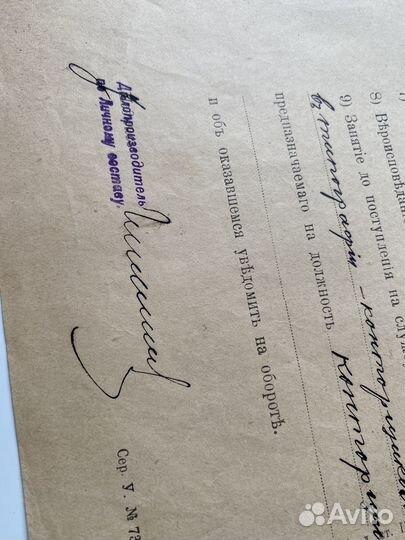 8) Вѣроисповѣдані
9) Занятіе до поступленія на служ
въ типографіи – конторщикъ
предназначаемаго на должность контор
и объ оказавшемся увѣдомить на оборотѣ.
Дѣлопроизводитель
по Личному составу.
Сер. У. № 73
Avito